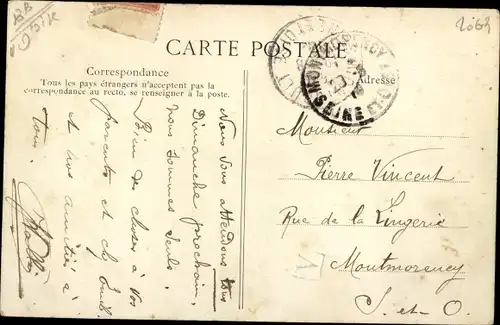 2063
CARTE POSTALE
Correspondance
Tous les pays étrangers n'acceptent pas la
correspondance au recto, se renseigner à la poste.
Adresse
MONTMORENCY
SEINE-ET-O
Nous vous attendons tous
Dimanche prochain,
nous sommes seuls.
Bien de choses à vos
parents et ch Emile
et nos amitiés à
tous.
Monsieur
Pierre Vincent
Rue de la Lingerie
Montmorency
S-et-O